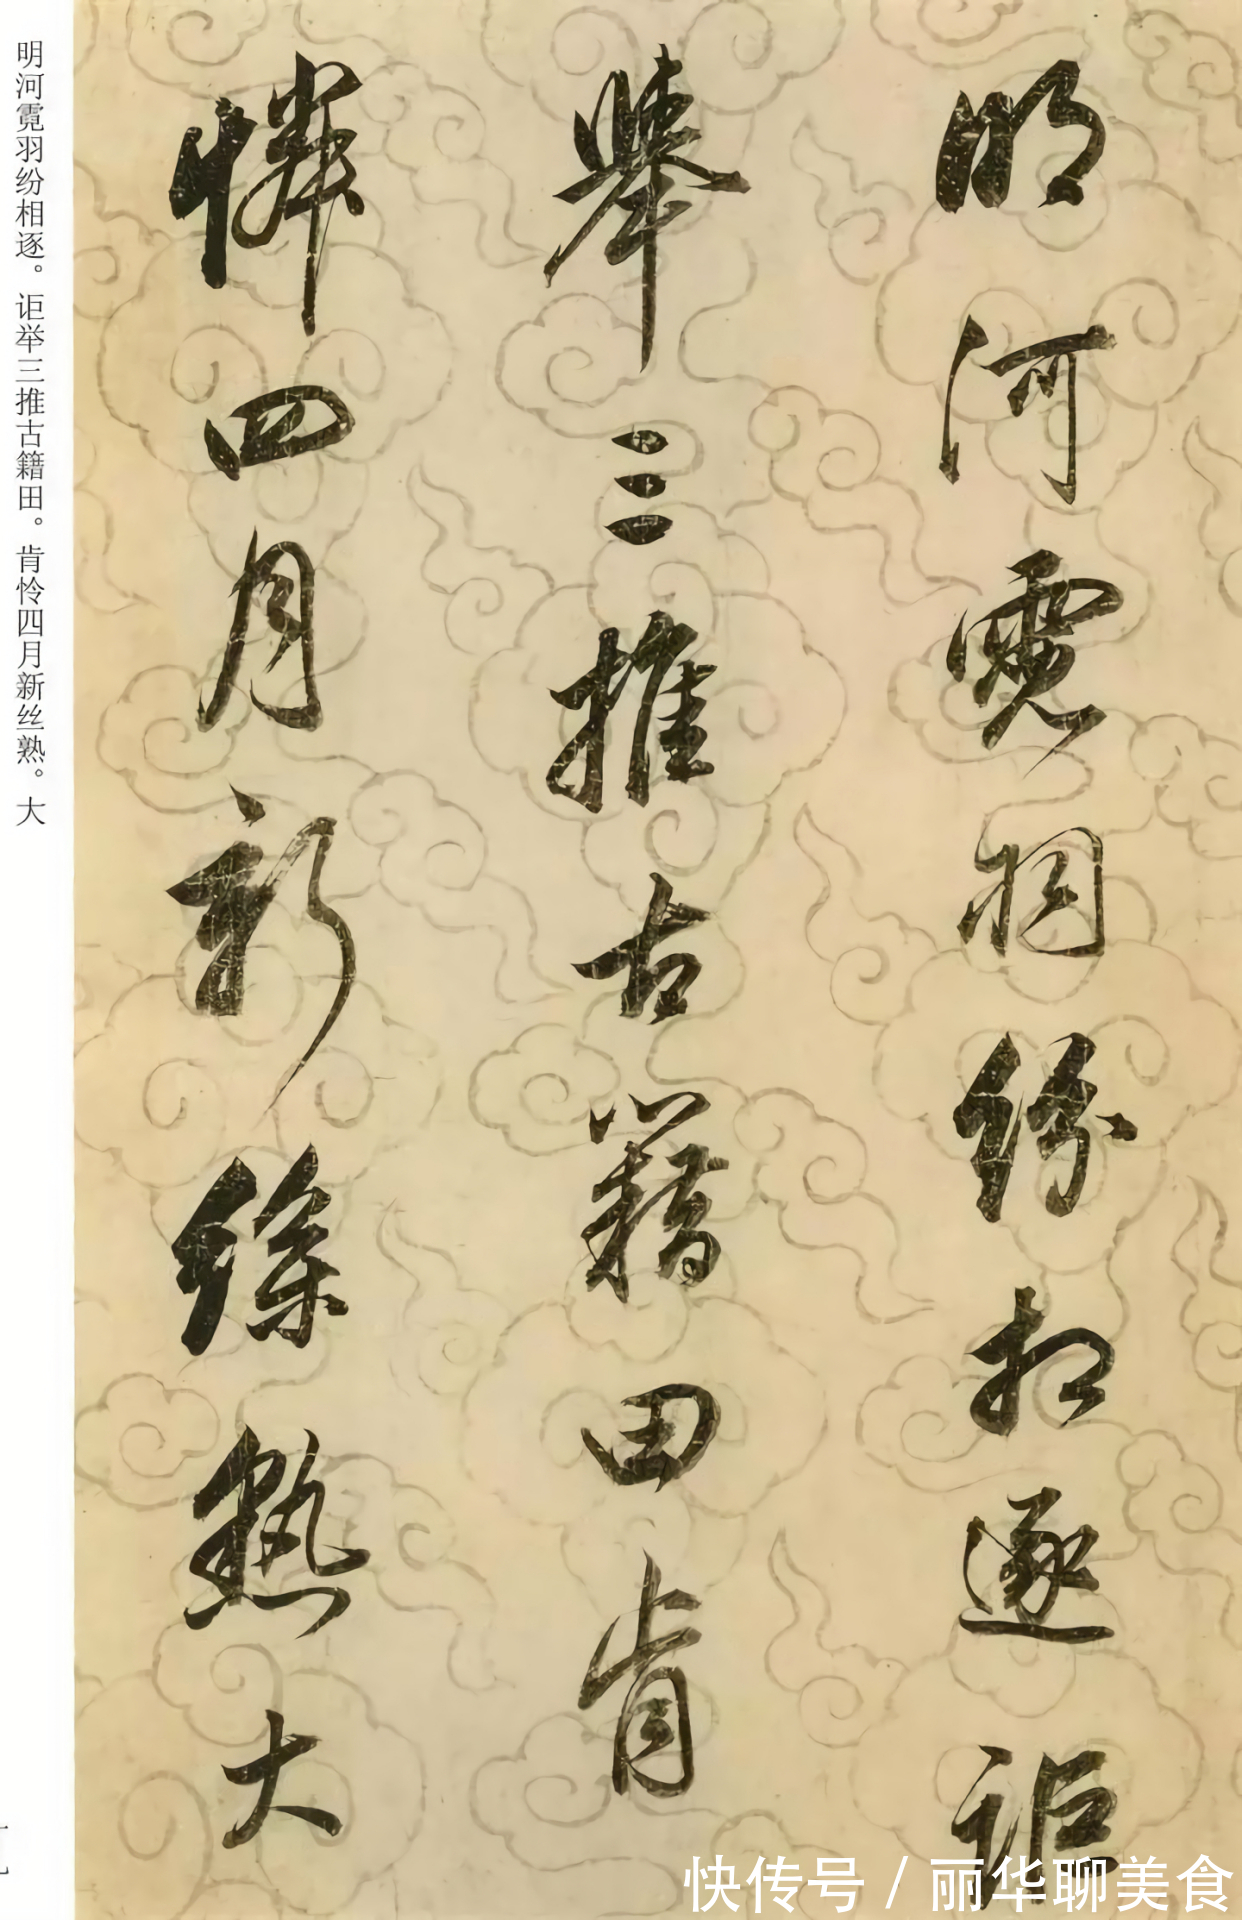 明河霓羽纷相逐。讵举三推古籍田。肯怜四月新丝熟。大
明河霓羽紛相逐詎
舉三推古籍田肯
憐四月新絲熟大
快传号/丽华聊美食